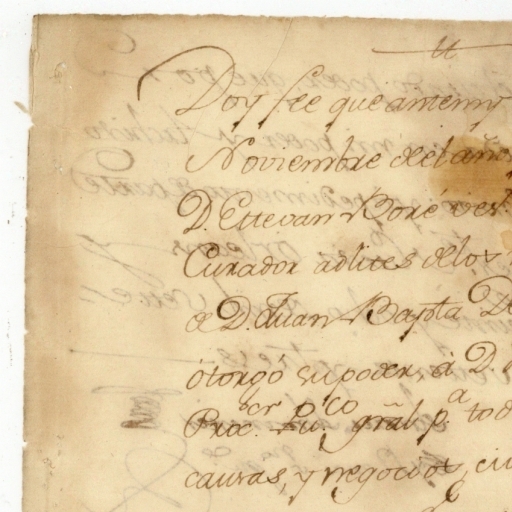 Doy fee que antemy
Noviembre del año
D. Estevan Boré vez.
Curador adlites delos
a D. Juan Bapta De
otorgó su poder á D.
Proc.or pu.co gñral p.a tod
causas, y negocios, ci